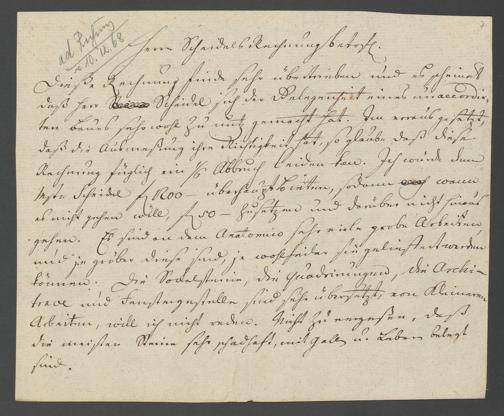 ad Prüfung
v. 10.12.68
Herrn Scheidels Rechnung betrefl.
Diese Rechnung finde sehr übertrieben und es scheint
daß Herr Scheidel sich der Gelegenheit eines unaccordir-
ten Baues sehr wohl zu nutz gemacht hat. Im voraus gesetzt,
daß die Ausmeßung ihre Richtigkeit hat, so glaube daß diese
Rechnung füglich ein 1/3 Abbruch leiden kan. Ich würde dem
Mstr Scheidel f 1200 – überhaupt bieten, sodann wann
es nicht gehen will, f 50 – zusetzen und darüber nicht hinaus
gehen. Es sind an dem Anatomico sehr viele grobe Arbeiten,
und je gröber diese sind, je wohlfeiler sie geliefert werden
können. Die Sockelsteine, die Quadrirungen, die Archi-
trave und Fenstergestelle sind sehr übersetzt, von kleineren
Arbeiten, will ich nicht reden. Nicht zu vergeßen, daß
die meisten Steine sehr schadhaft, mit Gallen u. Leber belegt
sind.